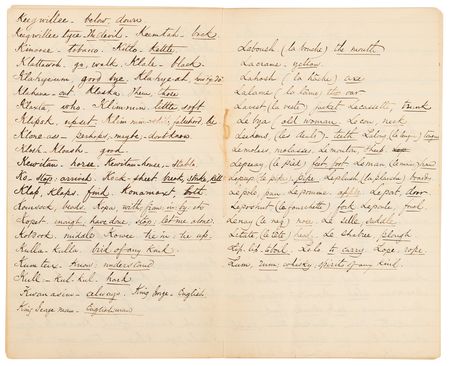 Keequillee - below, down
Keequillee tyee - The devil. Keemtah - back
Kinoose - tobacco. Kitlo - Kettle,
Klattawah - go, walk. Klale - black
Klahyeeum good bye - Klahyeah
Klahanie - out Klaska - Them, those
Klaxta, who. Klimmin little soft
Klapsh, upset Klim
Klone-ass - perhaps, maybe, dont know
Klosh - Kloash, good
Kewitan - horse. Kewitan-house, - Stable
Ko, stop, arrived. Kock-sheet break, strike, kill
Klap, Klaps, find, Konamoxt, both
book. Kopa, with, from, in, by, at
Kopet, enough, have done, stop, let me alone.
Kotsock, middle Kowee tie in, tie up.
Kulla-Kulla - bird of any kind.
Kumtux - Know, understand
Kull - Kul-Kul, hard
Kwanasum - always. King George - English
King George man - Englishman
Laboush (la bouche) the mouth
Lacrame - yellow
Lahosh (la hache) axe
Lalame (la rame) the oar
Lavest (la veste) jacket Lacassette, trunk
Le bya (old woman. Lecou, neck
Ledents, (les dents) - teeth Labus
Lemelass, molasses. Lemouton, sheep
Lepeeay (le pied) foot Leman
Lepeep (le pipe) pipe Laplash (la planche) boards
Lepole, pan, Lepomme apple Lepoat, door
Leposhut (la fourchette) fork Lepoule, fowl
Lenay (le nez) nose. Le selle, saddle
Letate, (le tête) head. Le shabree plough
Lip. lip. to boil Lolo to carry Lope, rope
Lum, rum, whisky, spirits of any kind.